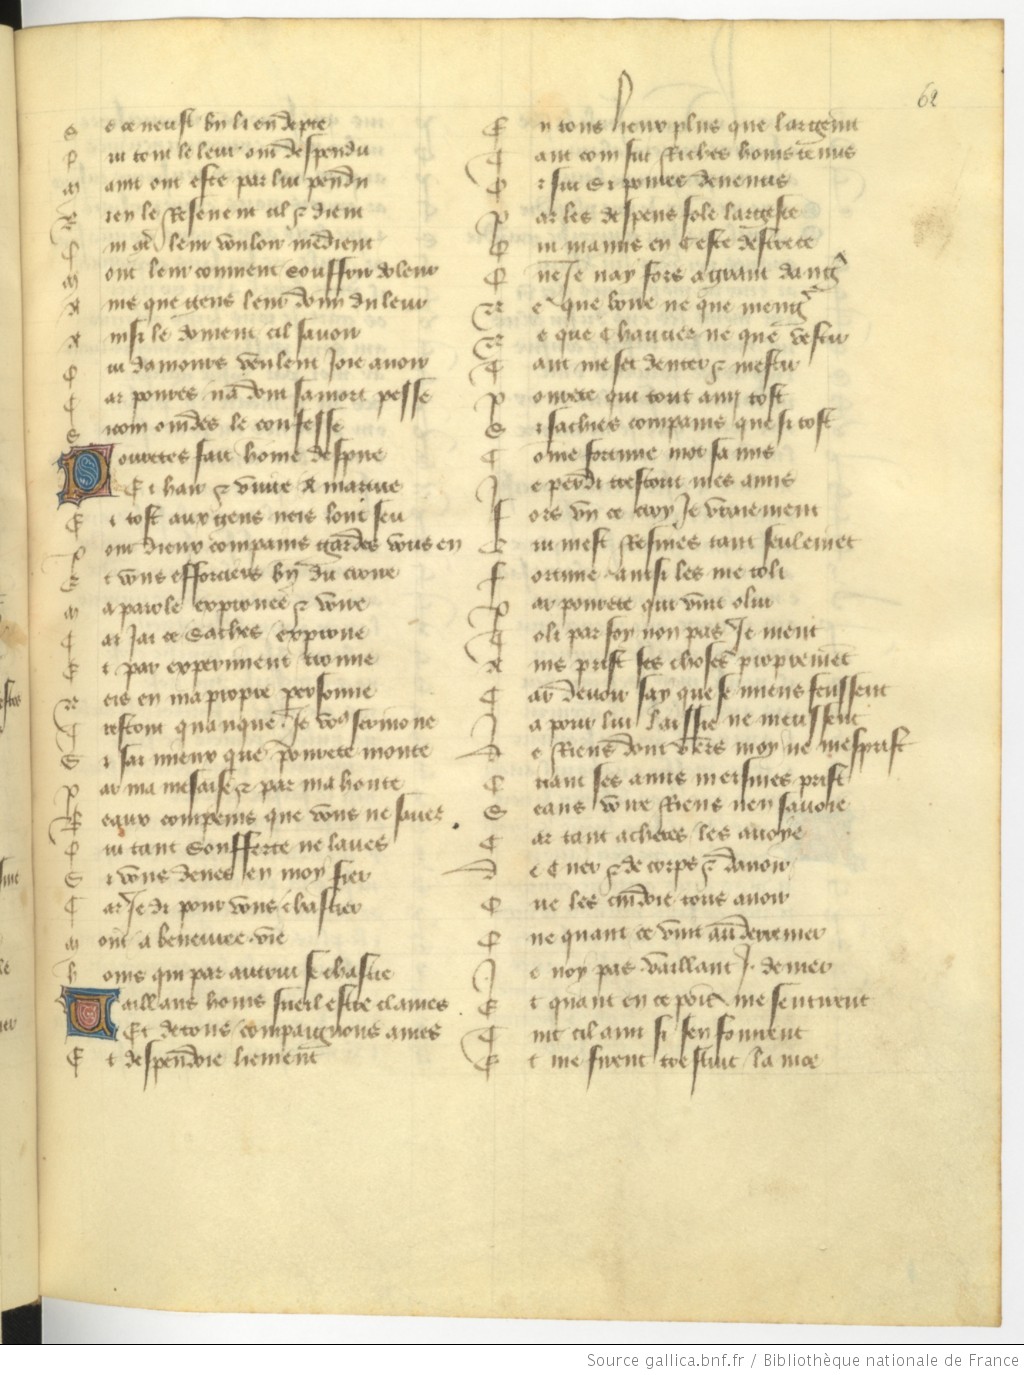 62
S e ce neust by li en depte
P our tout le leur ont despendu
M aint ont este par lui pendu
R ien le resenent cil et dient
M ont leur convient souffrir doleur
A ins que gens leur doint du leur
A insi le doivent cil savoir
Q ui damours veulent joie avoir
C ar povres na dont samort pesse
S icom ovides le confesse
Povretes fait home despire
Et hair et vivre a martire
E t tost aux gens neis lont seu
P ont dieux compains gardes vous en
E t vous efforciers by du croire
M a parole exprouvee et voire
C ar jai ce saches exprouve
E t par experiment trouve
N eis en ma propre personne
T restout quanque je vous sermone
S i sai mieux que povrete monte
P ar ma mesaise et par ma honte
B eaux compains que vous ne saves
Q ui tant soufferte ne laves
S i vous deves en moy fier
C ar je di pour vous chastier
M out a beneuree vie
H oms qui par autrui se chastie
Vaillans homs sueil estre clames
Et de tous compaignons ames
E t despendoie liement
E n tous lieux plus que largement
T ant com fui riches homs tenus
O r sui si povres devenus
P ar les despens fole largesce
Q ui ma mis en ceste destrece
Q ne je nay fors a grant dangier
N e que boire ne que mengier
N e que chaucier ne que vestir
T ant me set denter et mestir
P ovrete qui tout ami tost
E t sachies compains que si tost
C ome fortune mot sa mis
J e perdi trestous mes amis
F ors un ce croy je vraiement
Q ui mest remes tant seulement
F ortune ainsi les me toli
P ar povrete qui vint o lui
T oli par foy non pas je ment
A ins prist ses choses proprement
C ar de voir say que se miens feussent
J a pour lui laissie ne meussent
D e riens dont vers moy ne mesprist
Q uant ses amis meismes prist
S eans voire riens nen savoie
C ar tant achetes les avoye
D e cuer et de corps et davoir
Q ue les cuidoie tous avoir
Q ue quant ce vint au derrenier
J e noy pas vaillant i denier
E t quant en ce point me sentirent
T uit cil ami si sen fouirent
E t me firent trestuit la moe
Source gallica.bnf.fr / Bibliothèque nationale de France